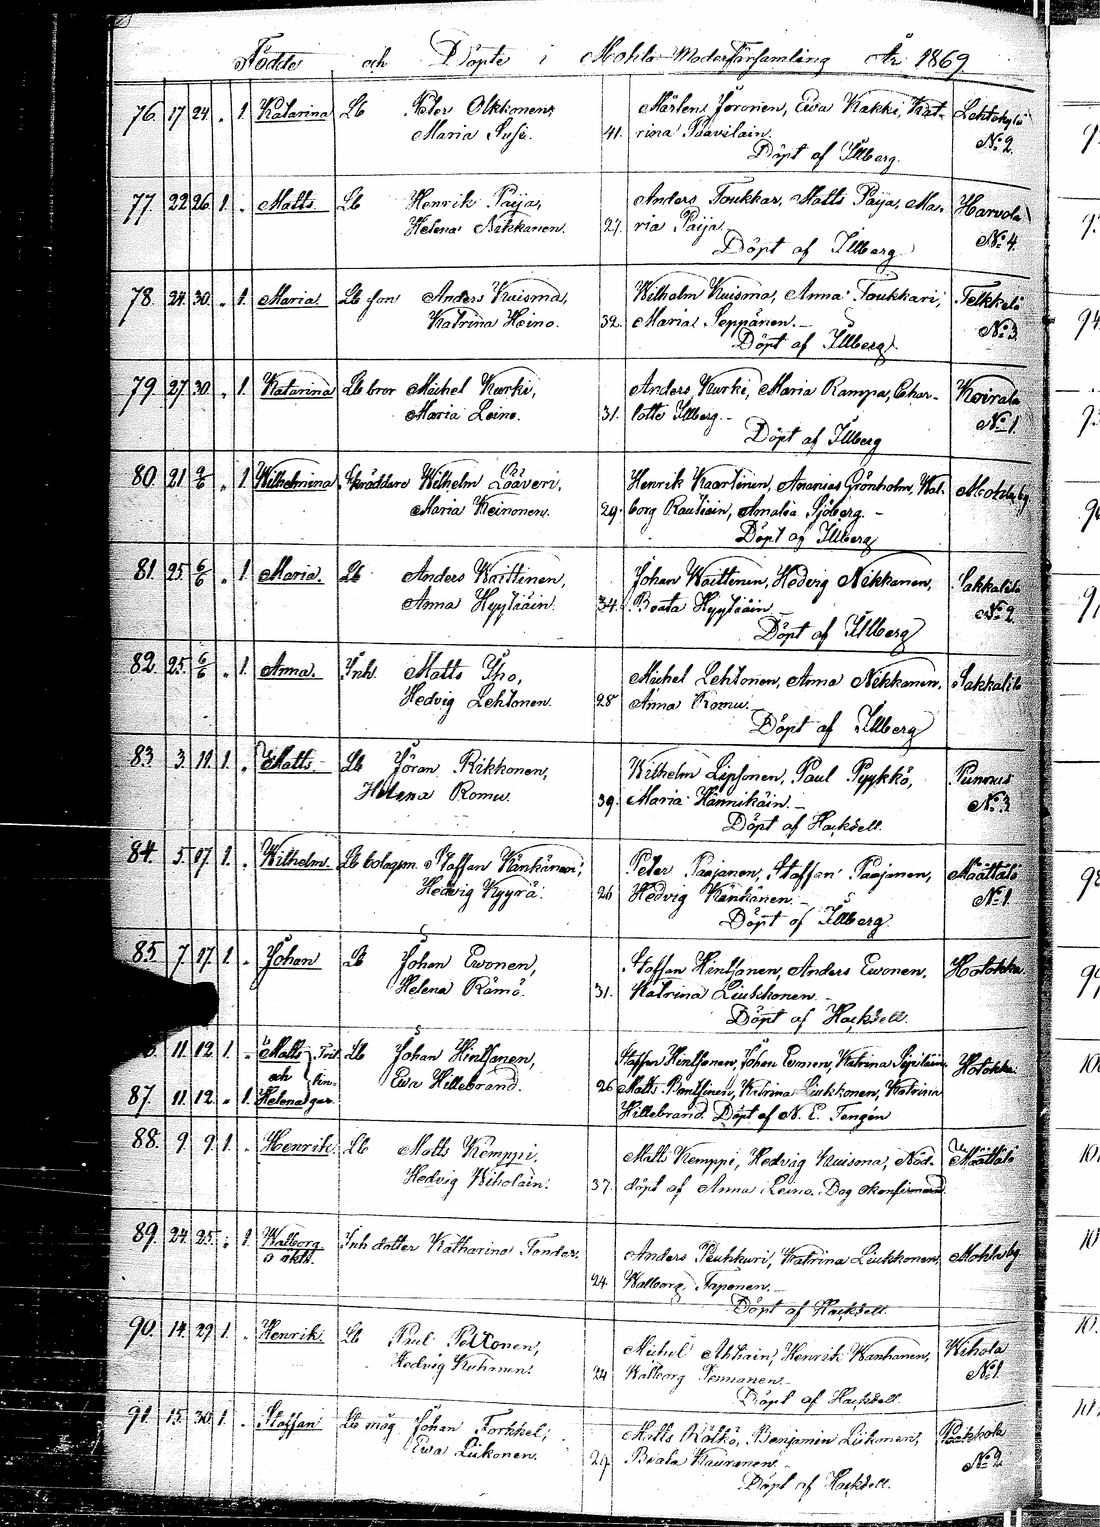 Födde och Döpte i Mohla Moderförsamling År 1869
76. 17 24 „ 1. Katarina Lb Peter Olkkonen, Mårten Joronen, Ewa Kakki, Kat- Lehtokylä
Maria Susi. 41. rina Paavilain. No 2.
Döpt af Illberg.
77. 22 26 1. „ Matts. Lb Henrik Paija, Anders Toukkar, Matts Paija, Ma- Harvola
Helena Nikkanen. 27. ria Paija. No 4.
Döpt af Illberg.
78. 24 30. „ 1. Maria. Lb son Anders Kuisma, Wilhelm Kuisma, Anna Toukkari, Telkkälä
Katrina Heino. 32. Maria Seppänen. No 3.
Döpt af Illberg.
79. 27 30 „ 1. Katarina Lb bror Michel Kurki, Anders Kurki, Maria Rampa, Char- Koirala
Maria Leino. 31. lotte Illberg. No 1.
Döpt af Illberg
80. 21 2/6 „ 1 Wilhelmina Skräddare Wilhelm Lääveri, Henrik Kaartinen, Ananias Grönholm, Wal- Mohla by.
Maria Keinonen. 29. borg Rautiain, Amalia Sjöberg.
Döpt af Illberg
81. 25 6/6 „ 1. Maria. Lb Anders Waittinen, Johan Waittinen, Hedvig Nikkanen, Sakkalila
Anna Hyytiäin. 34. Beata Hyytiäin No 2.
Döpt af Illberg
82. 25. 6/6 „ 1. Anna. Inh. Matts Iho, Michel Lehtonen, Anna Nikkanen, Sakkalila
Hedvig Lehtonen. 28 Anna Romu.
Döpt af Illberg
83. 3 11. 1. „ Matts. Lb Jöran Rikkonen, Wilhelm Liponen, Paul Pyykkö, Punnus
Helena Romu. 39. Maria Hännikäin. No 3.
Döpt af Hacksell.
84. 5. 17. 1. „ Wilhelm. Lb bolagsm. Staffan Känkänen, Peter Paajanen, Staffan Paajanen, Määttälä
Hedvig Kyyrä. 26 Hedvig Känkänen. No 1.
Döpt af Illberg
85. 7 17. 1. „ Johan Lb Johan Ewonen, Staffan Hinttonen, Anders Ewonen, Hotokka.
Helena Rämö. 31. Katrina Liukkonen.
Döpt af Hacksell.
11. 12. 1. „ Matts Tvil- Lb Johan Hinttonen, Staffan Hinttonen, Johan Ewonen, Katrina Hotokka.
och lin- Ewa Hillebrand. 26 Matts Katrina Liukkonen, Katrina
87. 11. 12. „ 1. Helena gar. Hillebrand. Döpt af N. E. Tengén
88. 9. 9. 1. „ Henrik. Lb Matts Kemppi, Matts Kemppi, Hedvig Kuisma, Nöd- Määttälä
Hedvig Wiholain. 37. döpt af Anna Leino. Dog okonfirmerad.
89. 24 25. „ 1. Walborg Inh dotter Katharina Tonder. Anders Peuhkuri, Katrina Liukkonen, Mohla by
o äkta. 24 Walborg Taponen.
Döpt af Hacksell.
90. 14. 29 1. „ Henrik. Lb Paul Peltonen, Michel Ahtiain, Henrik Wanhanen, Wihola
Hedvig Kuhanen. 24 Walborg No 1
Döpt af Hacksell.
91. 15. 30 1. „ Staffan Lb måg Johan Torkkel, Matts Rölkö, Benjamin Liikonen,
Ewa Liikonen. 29. Beata Kauranen. No 2
Döpt af Hacksell.